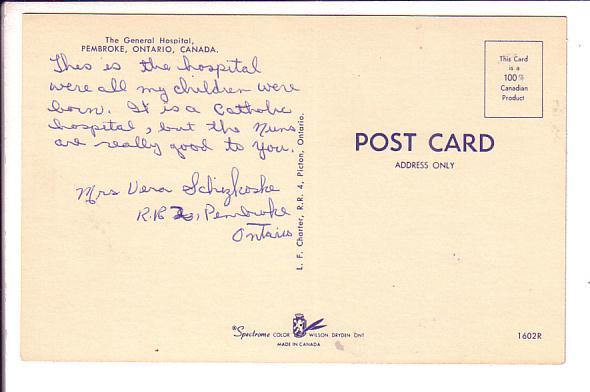 The General Hospital,
PEMBROKE, ONTARIO, CANADA.
This is the hospital
were all my children were
born. It is a Catholic
hospital, but the Nuns
are really good to you.
Mrs Vera Schizkoske
R.R. Pembroke
Ontario
L. F. Charter, R.R. 4, Picton, Ontario.
This Card
is a
100%
Canadian
Product
POST CARD
ADDRESS ONLY
Spectrome COLOR WILSON, DRYDEN ONT
MADE IN CANADA
1602R